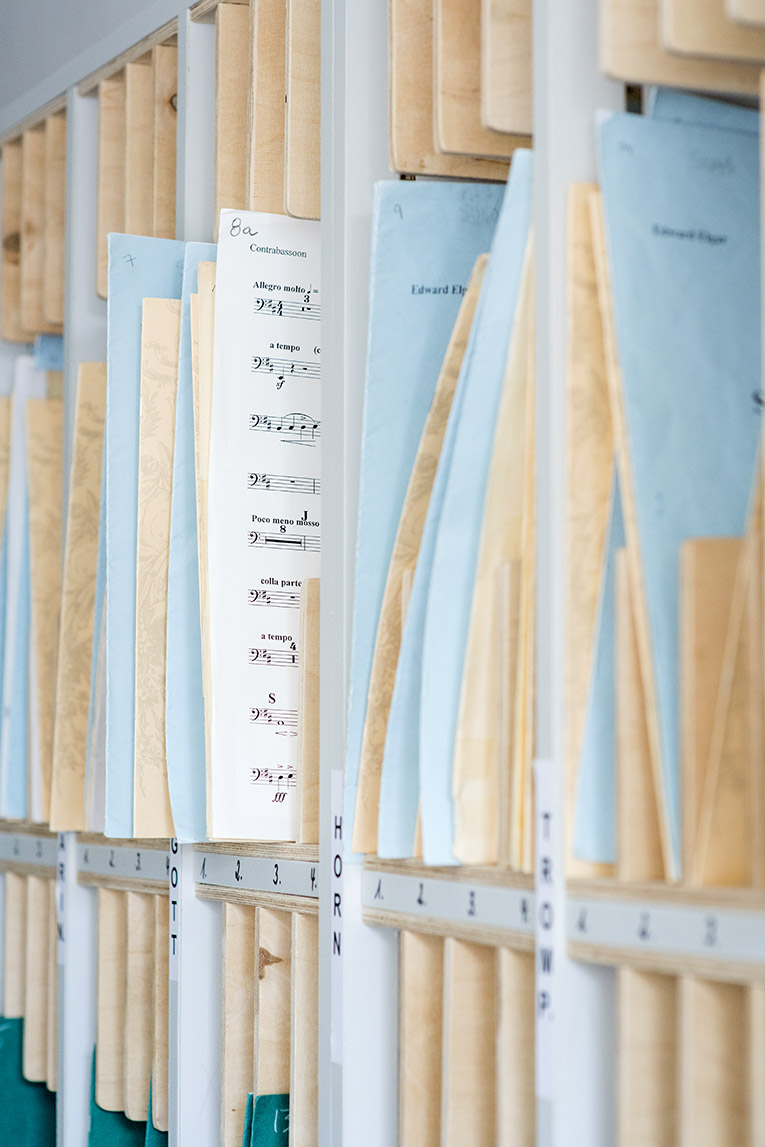 8a
Contrabassoon
Allegro molto ♩=
3
a tempo (c
sf
J
Poco meno mosso
8
colla parte
a tempo
4
S
fff
7
9
Edward Elg
Edward Elgar
1. 2. 3. 4.
1. 2. 3. 4.
1. 2. 3.
1. 2. 3.
2. 3.
ARIN.
GOTT
HORN
TROMP.
13